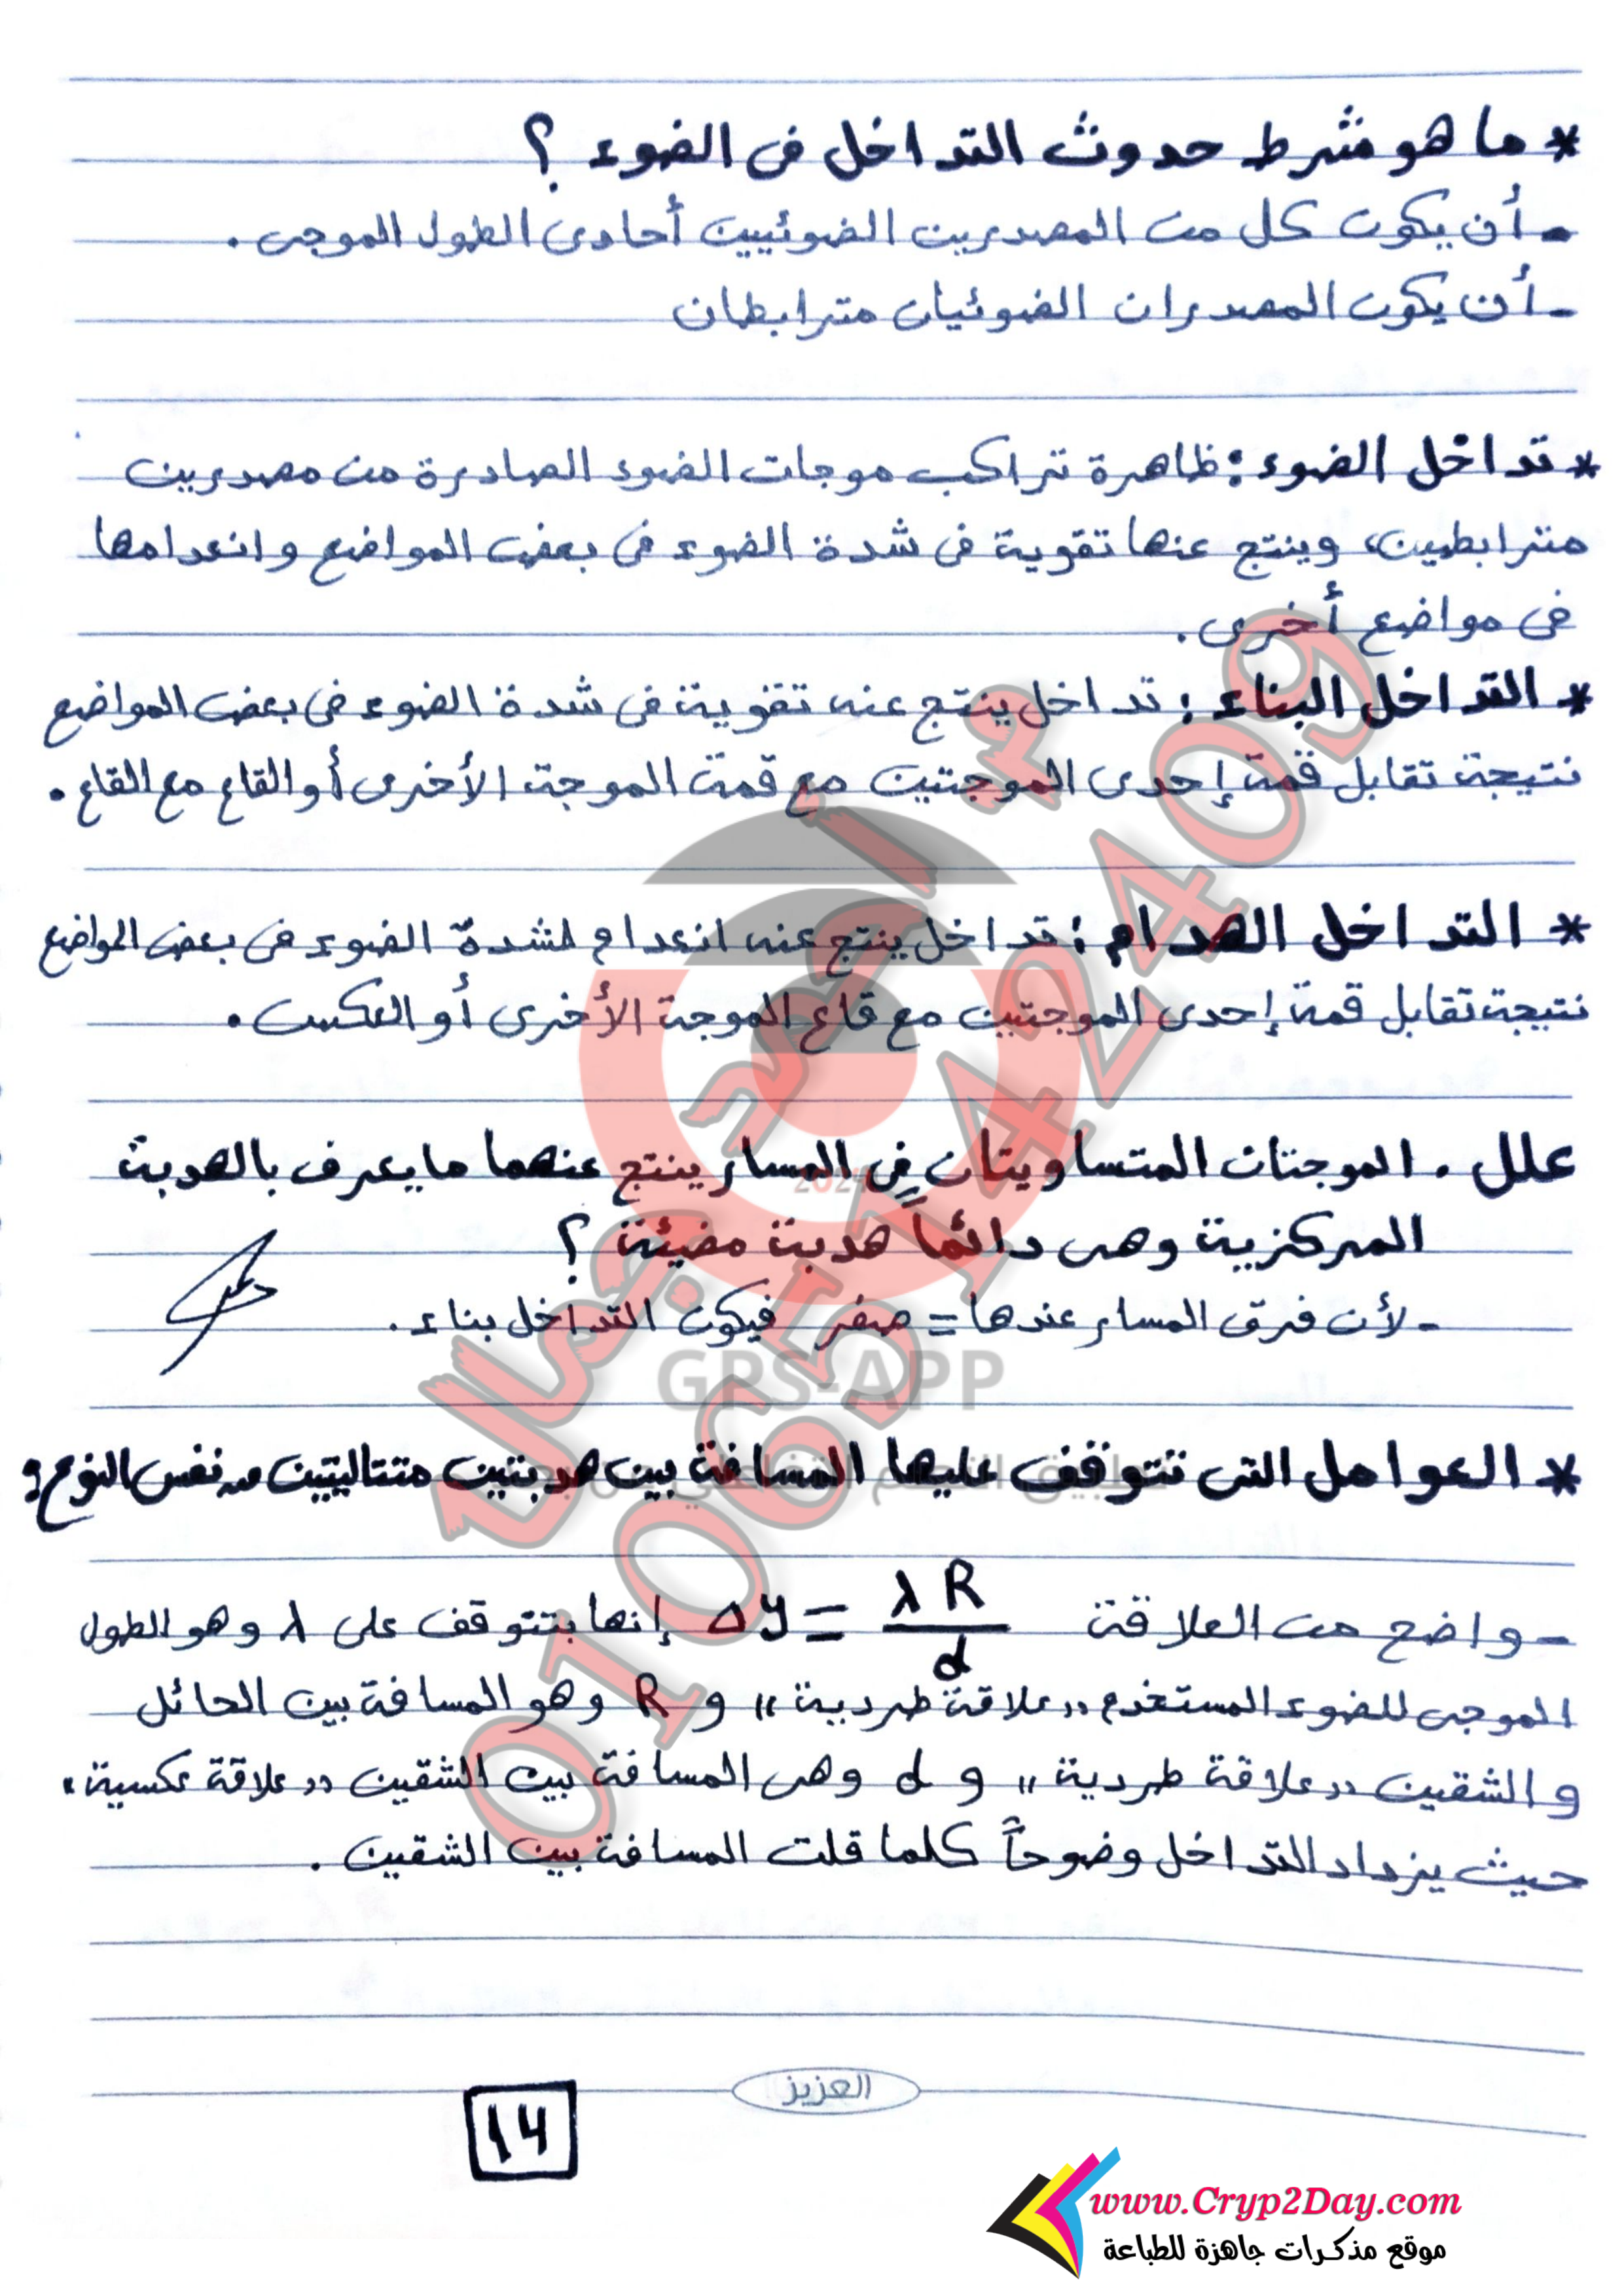 * ما هو شرط حدوث التداخل فى الضوء ؟
- أن يكون كل من المصدرين الضوئيين أحادى الطول الموجى .
- أن يكون المصدران الضوئيان مترابطان
* تداخل الضوء : ظاهرة تراكب موجات الضوء الصادرة من مصدرين
مترابطين، وينتج عنها تقوية فى شدة الضوء فى بعض المواضع وانعدامها
فى مواضع أخرى .
* التداخل البناء : تداخل ينتج عنه تقوية فى شدة الضوء فى بعض المواضع
نتيجة تقابل قمة إحدى الموجتين مع قمة الموجة الأخرى أو القاع مع القاع .
* التداخل الهدام : تداخل ينتج عنه انعدام لشدة الضوء فى بعض المواضع
نتيجة تقابل قمة إحدى الموجتين مع قاع الموجة الأخرى أو العكس .
علل . الموجتان المتساويتان فى المسار ينتج عنهما ما يعرف بالهدبة
المركزية وهى دائماً هدبة مضيئة ؟
- لأن فرق المسار عندها = صفر فيكون التداخل بناء .
* العوامل التى تتوقف عليها المسافة بين هدبتين متتاليتين من نفس النوع :
- واضح من العلاقة Δy = λR/d إنها بتتوقف على λ وهو الطول
الموجى للضوء المستخدم "علاقة طردية" و R وهو المسافة بين الحائل
و الشقين "علاقة طردية" و d وهى المسافة بين الشقين "علاقة عكسية"
حيث يزداد التداخل وضوحاً كلما قلت المسافة بين الشقين .
العزيز
14
م أحمد جمال
01065142409
2024
GPS-APP
www.Cryp2Day.com
موقع مذكرات جاهزة للطباعة